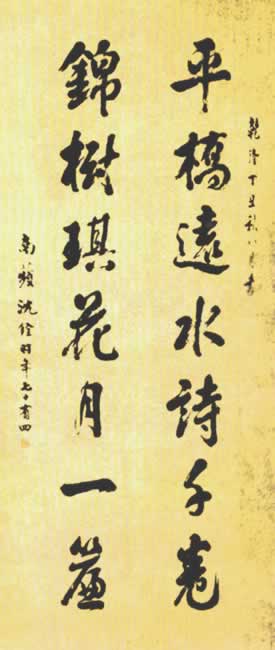 乾隆丁丑秋八月書
平橋遠水詩千卷
錦樹琪花月一簾
南蘋沈銓時年七十有四